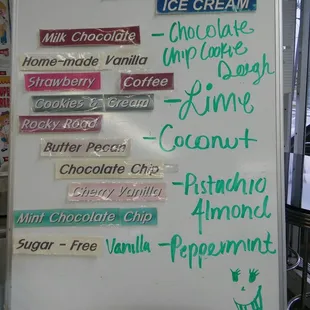 ICE CREAM
Milk Chocolate
Home-made Vanilla
Strawberry Coffee
Cookies & Cream
Rocky Road
Butter Pecan
Chocolate Chip
Cherry Vanilla
Mint Chocolate Chip
Sugar - Free Vanilla
- Chocolate
Chip Cookie
Dough
- Lime
- Coconut
- Pistachio
Almond
- Peppermint